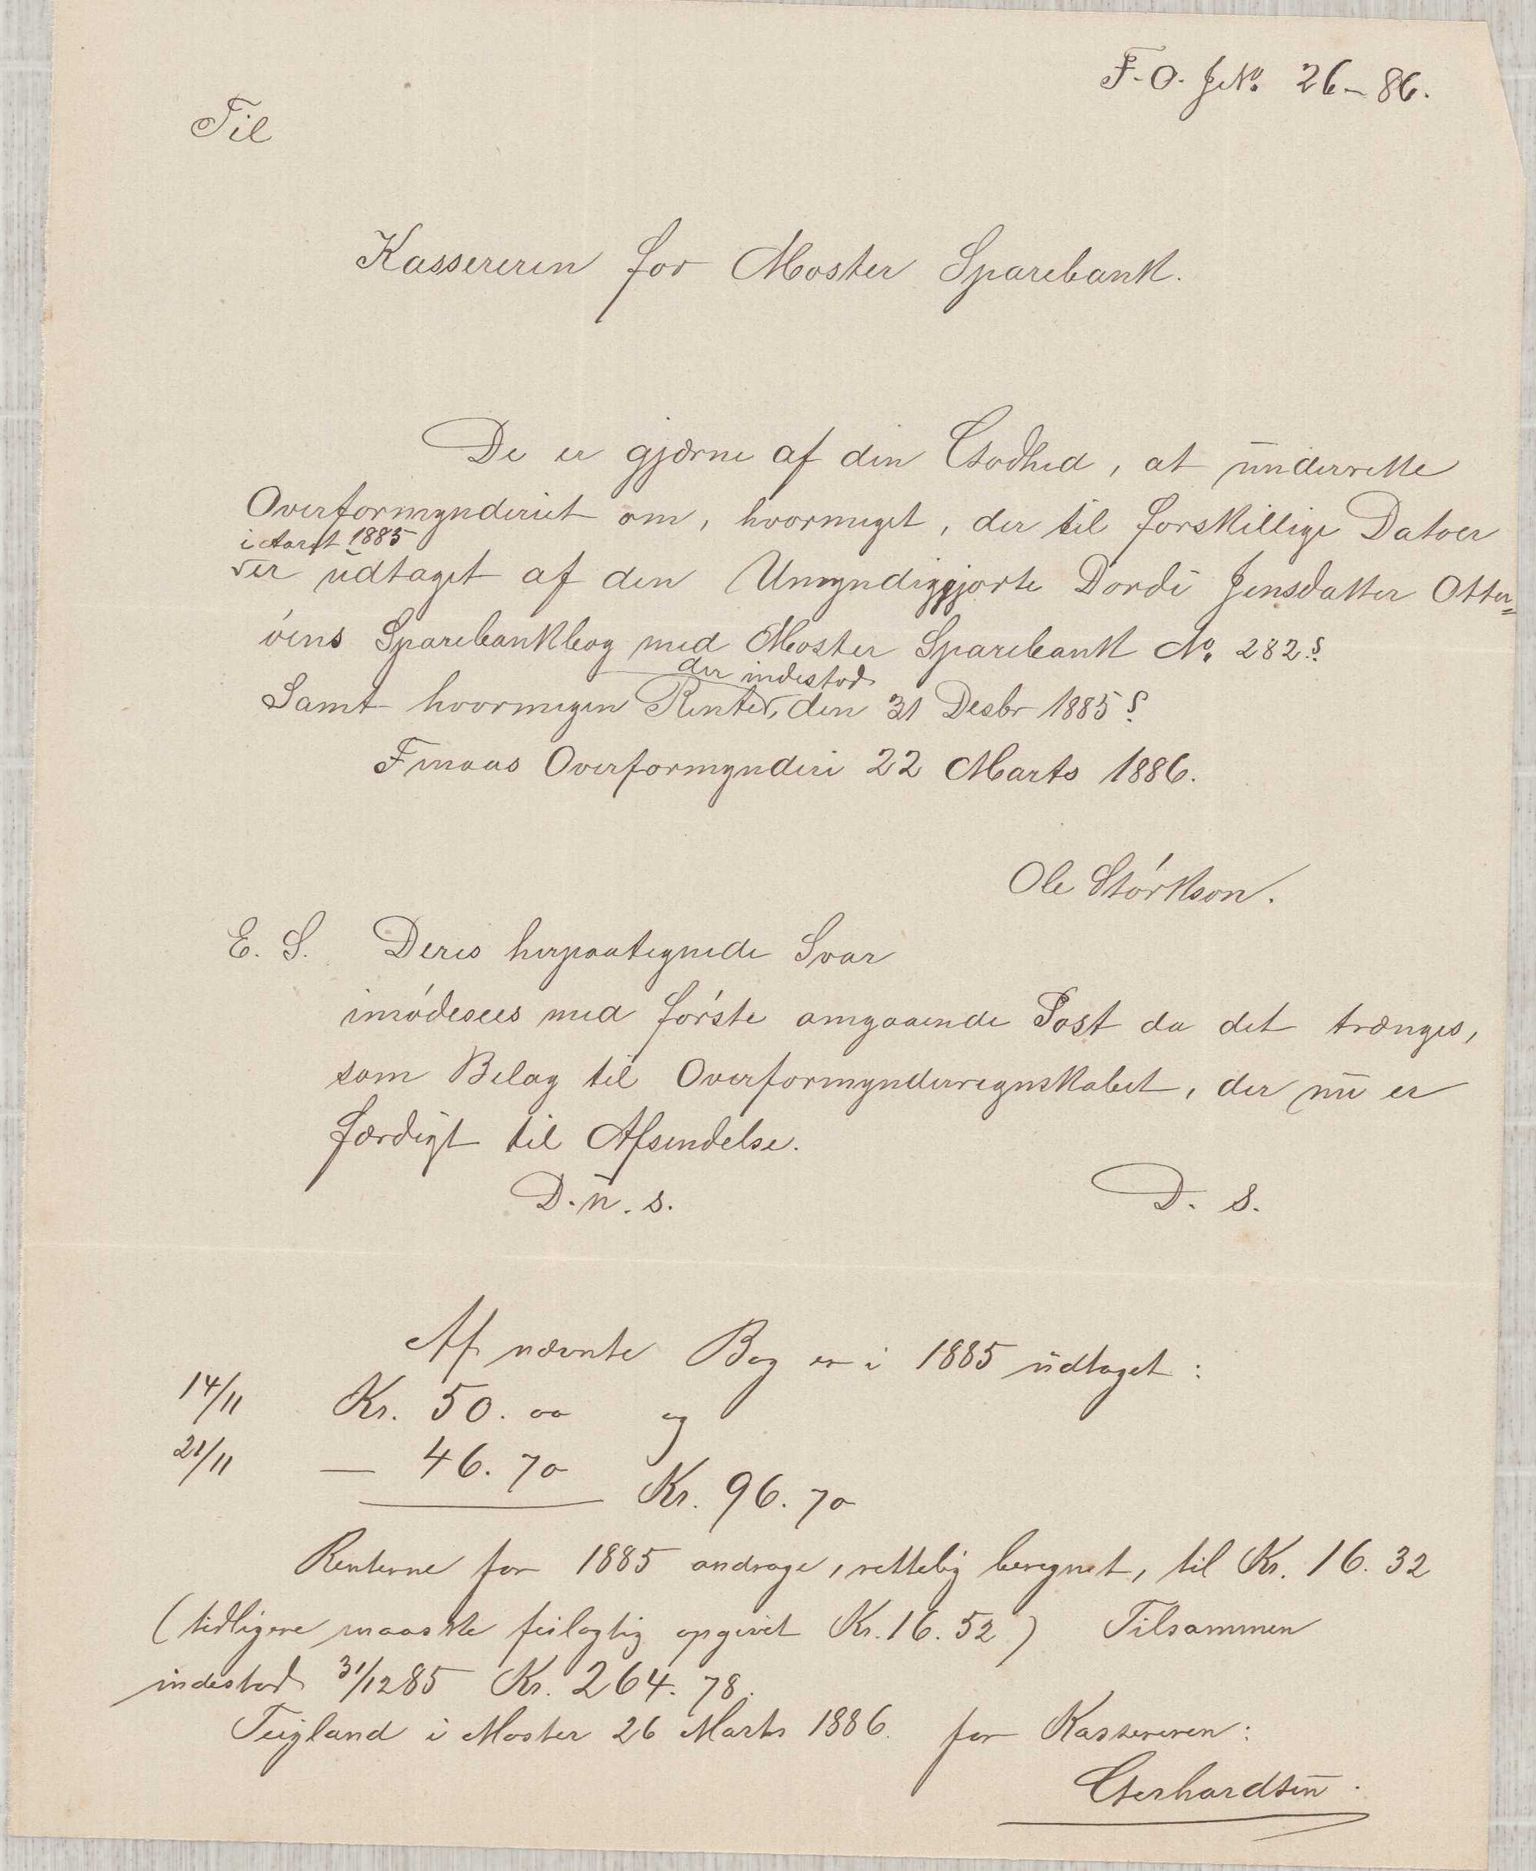 F. O. J№. 26-86.
Til
Kassereren for Moster Sparebank.
De er gjærne af den Godhed, at underrette
Overformynderiet om, hvormeget, der til forskillige Datoer
i Aaret 1885
er udtaget af den Umyndiggjorte Dordi Jensdatter Otter=
öens Sparebankbog med Moster Sparebank No. 282?
der indestod
Samt hvormegen Renter, den 31 Desbr 1885?
Finaas Overformynderi 22 Marts 1886.
Ole Störkson.
E. S. Deres herpaategnede Svar
imödesees med förste omgaaende Post da det trænges,
som Belag til Overformynderregnskabet, der nu er
færdigt til Afsendelse.
D. u. s. D. S.
Af nævnte Bog er i 1885 udtaget:
14/11 Kr. 50. 00 og
21/11 — 46. 70
Kr. 96. 70
Renterne for 1885 andrage, rettelig beregnet, til Kr. 16. 32
(tidligere maaske feilagtig opgivet Kr. 16. 52) Tilsammen
indestod 31/12 85 Kr. 264. 78.
Teigland i Moster 26 Marts 1886. for Kassereren:
Gerhardsen.